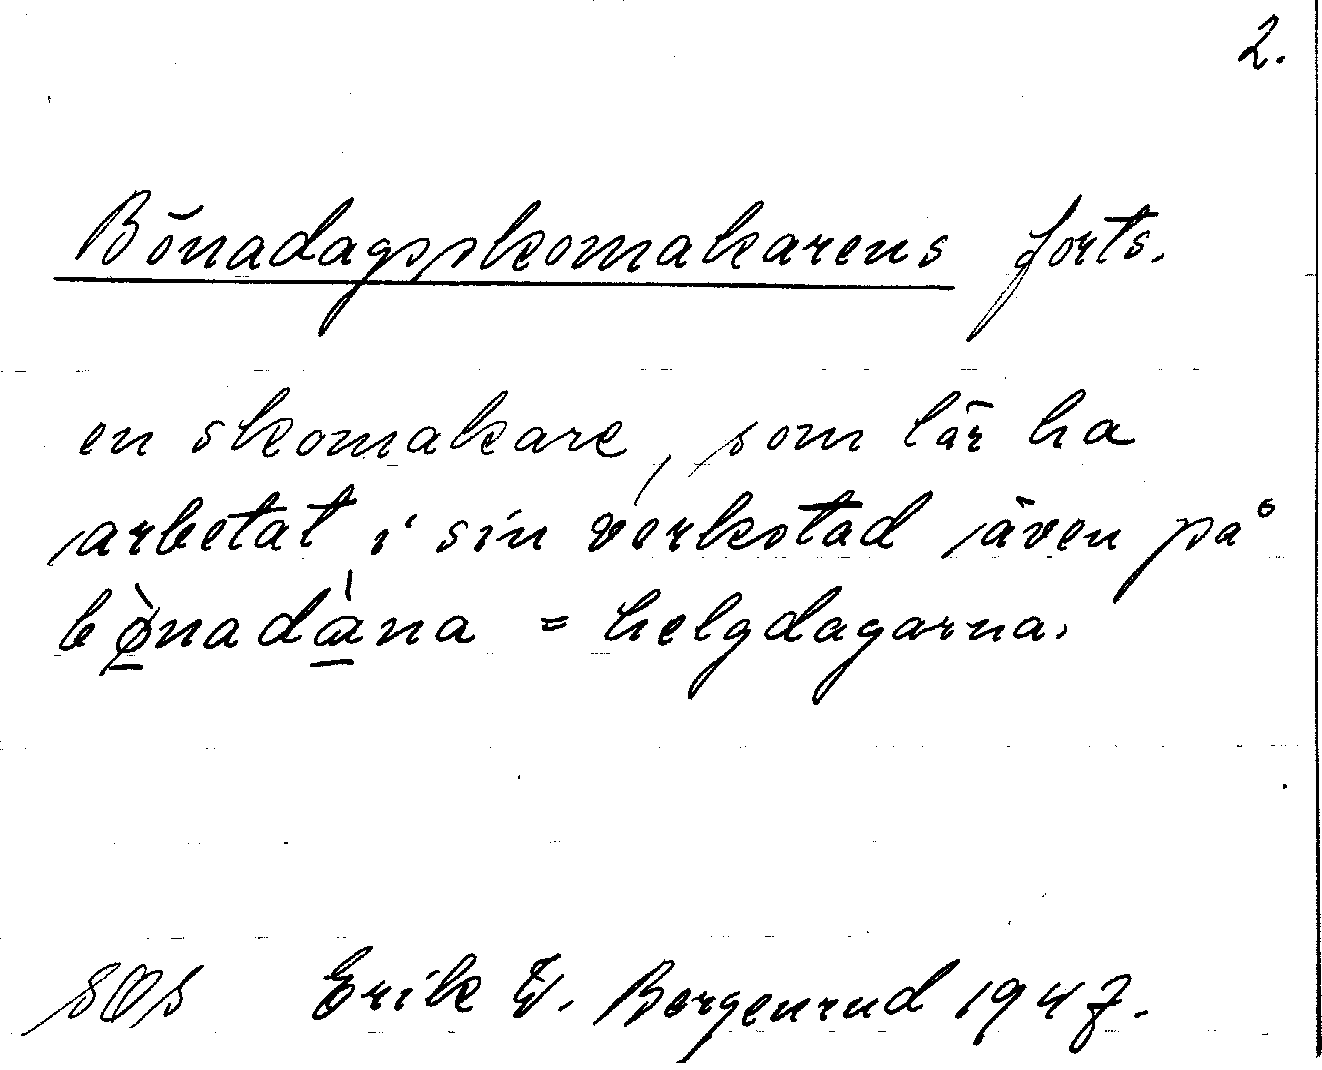 2.
Bönadagsskomakarens forts.
en skomakare, som lär ha
arbetat i sin verkstad även på
bø̱̀nadà̱na = helgdagarna.
SOS Erik W. Bergenrud 1947.